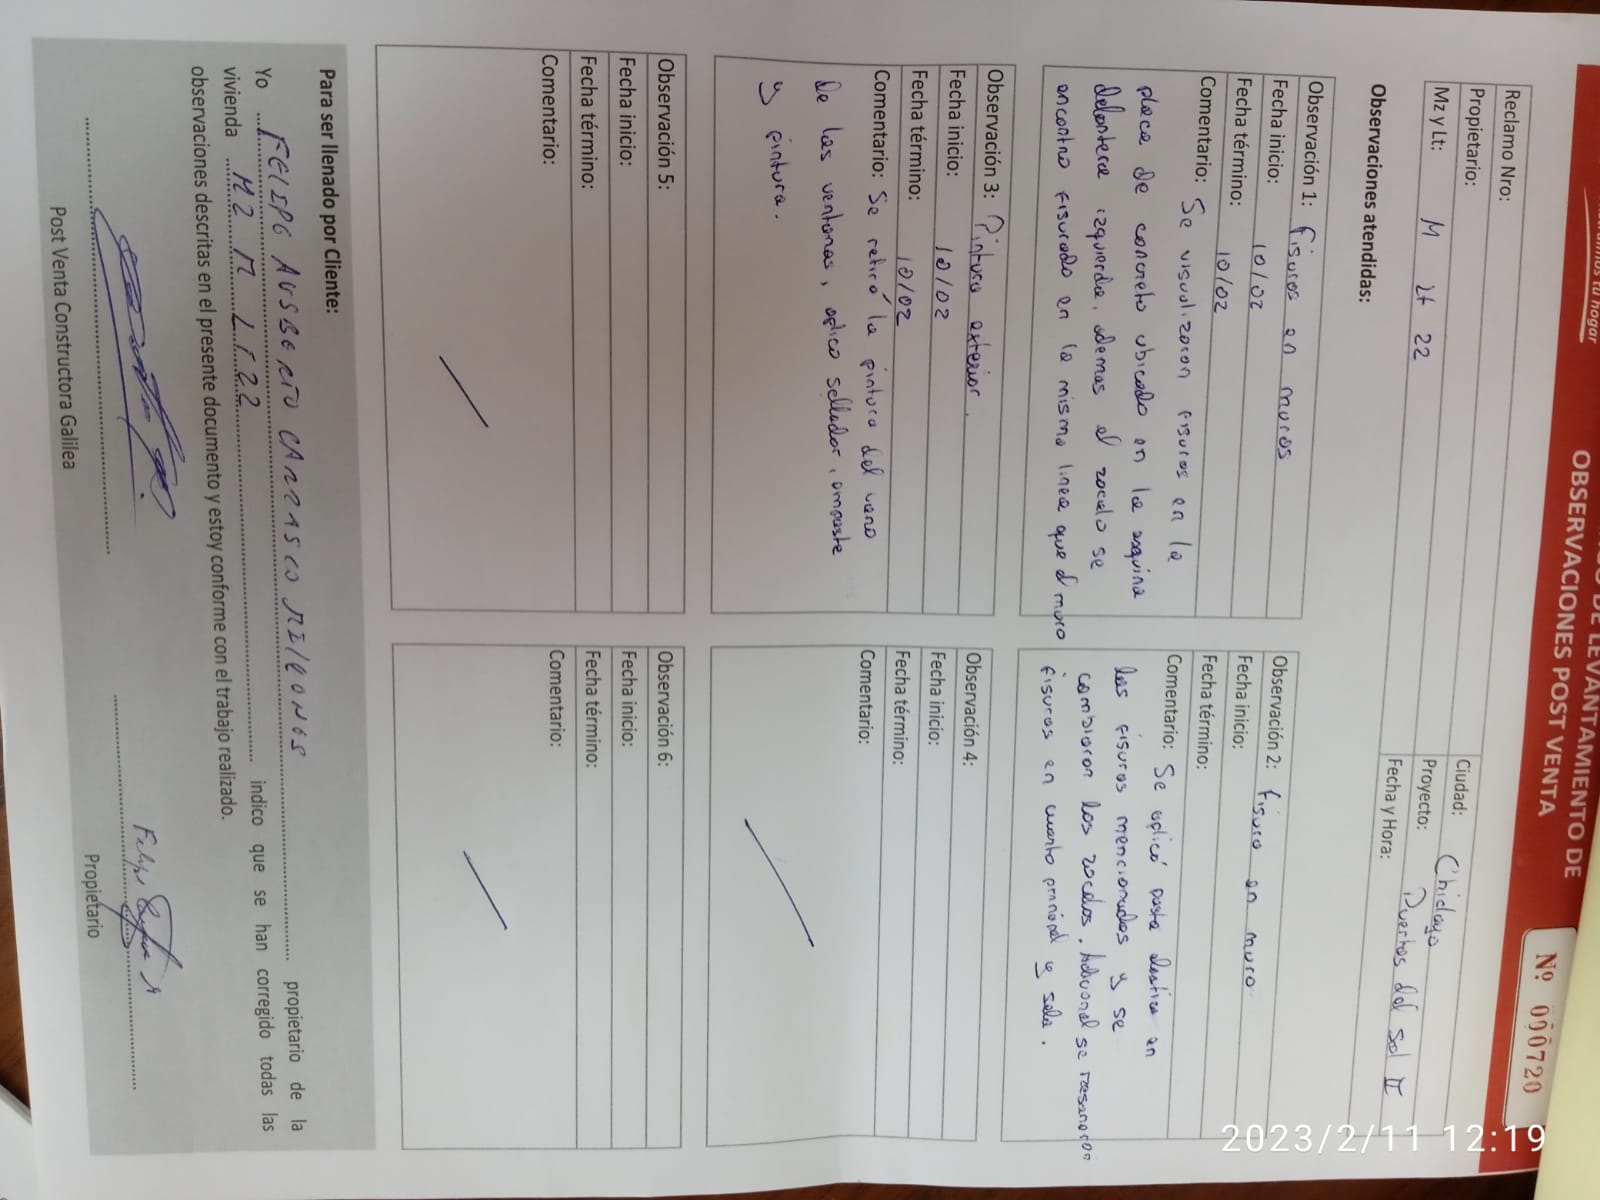 tu hogar
DE LEVANTAMIENTO DE
OBSERVACIONES POST VENTA
Nº 000720
Reclamo Nro:
Propietario:
Ciudad: Chiclayo
Mz y Lt: M Lt 22
Proyecto: Puertas del Sol II
Fecha y Hora:
Observaciones atendidas:
Observación 1: fisuras en muros
Fecha inicio: 10/02
Fecha término: 10/02
Comentario: Se visualizaron fisuras en la
placa de concreto ubicado en la esquina
delantera izquierda, ademas el zocalo se
encontro fisurado en la misma linea que el muro
Observación 2: fisura en muro
Fecha inicio:
Fecha término:
Comentario: Se aplicó pasta elastica en
las fisuras mencionadas y se
cambiaron los zocalos. Adicional se resanaron
fisuras en cuarto principal y sala.
Observación 3: Pintura exterior.
Fecha inicio: 10/02
Fecha término: 10/02
Comentario: Se retiró la pintura del vano
De las ventanas, aplico sellador, empaste
y pintura.
Observación 4:
Fecha inicio:
Fecha término:
Comentario:
Observación 5:
Fecha inicio:
Fecha término:
Comentario:
Observación 6:
Fecha inicio:
Fecha término:
Comentario:
Para ser llenado por Cliente:
Yo FELIPE AUSBERTO CARRASCO MILLONES propietario de la
vivienda MZ M LT 22 indico que se han corregido todas las
observaciones descritas en el presente documento y estoy conforme con el trabajo realizado.
Post Venta Constructora Galilea
Propietario
2023/2/11 12:19